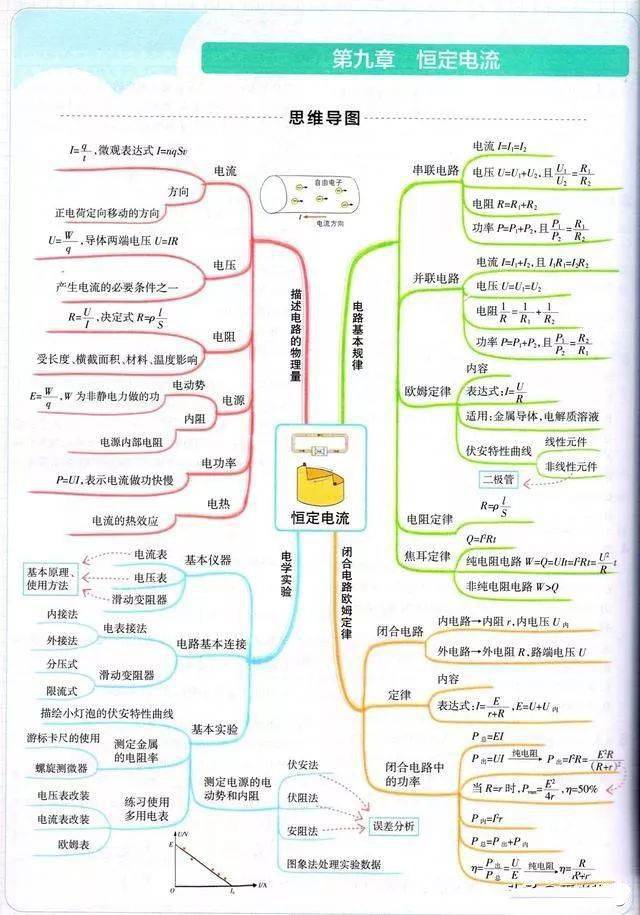 第九章 恒定电流
思维导图
I=q/t,微观表达式 I=nqSv
电流
方向
正电荷定向移动的方向
U=W/q,导体两端电压 U=IR
电压
产生电流的必要条件之一
R=U/I,决定式 R=ρl/S
电阻
受长度、横截面积、材料、温度影响
电动势
E=W/q,W 为非静电力做的功
电源
内阻
电源内部电阻
电功率
P=UI,表示电流做功快慢
电热
电流的热效应
描述电路的物理量
自由电子
I
电流方向
电路基本规律
串联电路
电流 I=I₁=I₂
电压 U=U₁+U₂,且U₁/U₂=R₁/R₂
电阻 R=R₁+R₂
功率 P=P₁+P₂,且P₁/P₂=R₁/R₂
并联电路
电流 I=I₁+I₂,且 I₁R₁=I₂R₂
电压 U=U₁=U₂
电阻1/R=1/R₁+1/R₂
功率 P=P₁+P₂,且P₁/P₂=R₂/R₁
欧姆定律
内容
表达式:I=U/R
适用:金属导体,电解质溶液
伏安特性曲线
线性元件
非线性元件
二极管
电阻定律
R=ρl/S
焦耳定律
Q=I²Rt
纯电阻电路 W=Q=UIt=I²Rt=U²/R t
非纯电阻电路 W>Q
恒定电流
电学实验
基本仪器
电流表
电压表
滑动变阻器
基本原理、
使用方法
电路基本连接
电表接法
内接法
外接法
滑动变阻器
分压式
限流式
基本实验
描绘小灯泡的伏安特性曲线
测定金属
的电阻率
游标卡尺的使用
螺旋测微器
练习使用
多用电表
电压表改装
电流表改装
欧姆表
测定电源的电
动势和内阻
伏安法
伏阻法
安阻法
误差分析
图象法处理实验数据
U/V
E
O
I/A
闭合电路欧姆定律
闭合电路
内电路→内阻 r,内电压 U内
外电路→外电阻 R,路端电压 U
定律
内容
表达式:I=E/(r+R),E=U+U内
闭合电路中
的功率
P总=EI
P出=UI 纯电阻→ P出=I²R=E²R/(R+r)²
当 R=r 时,Pmax=E²/4r,η=50%
P内=I²r
P总=P出+P内
η=P出/P总=U/E 纯电阻→ η=R/(R+r)